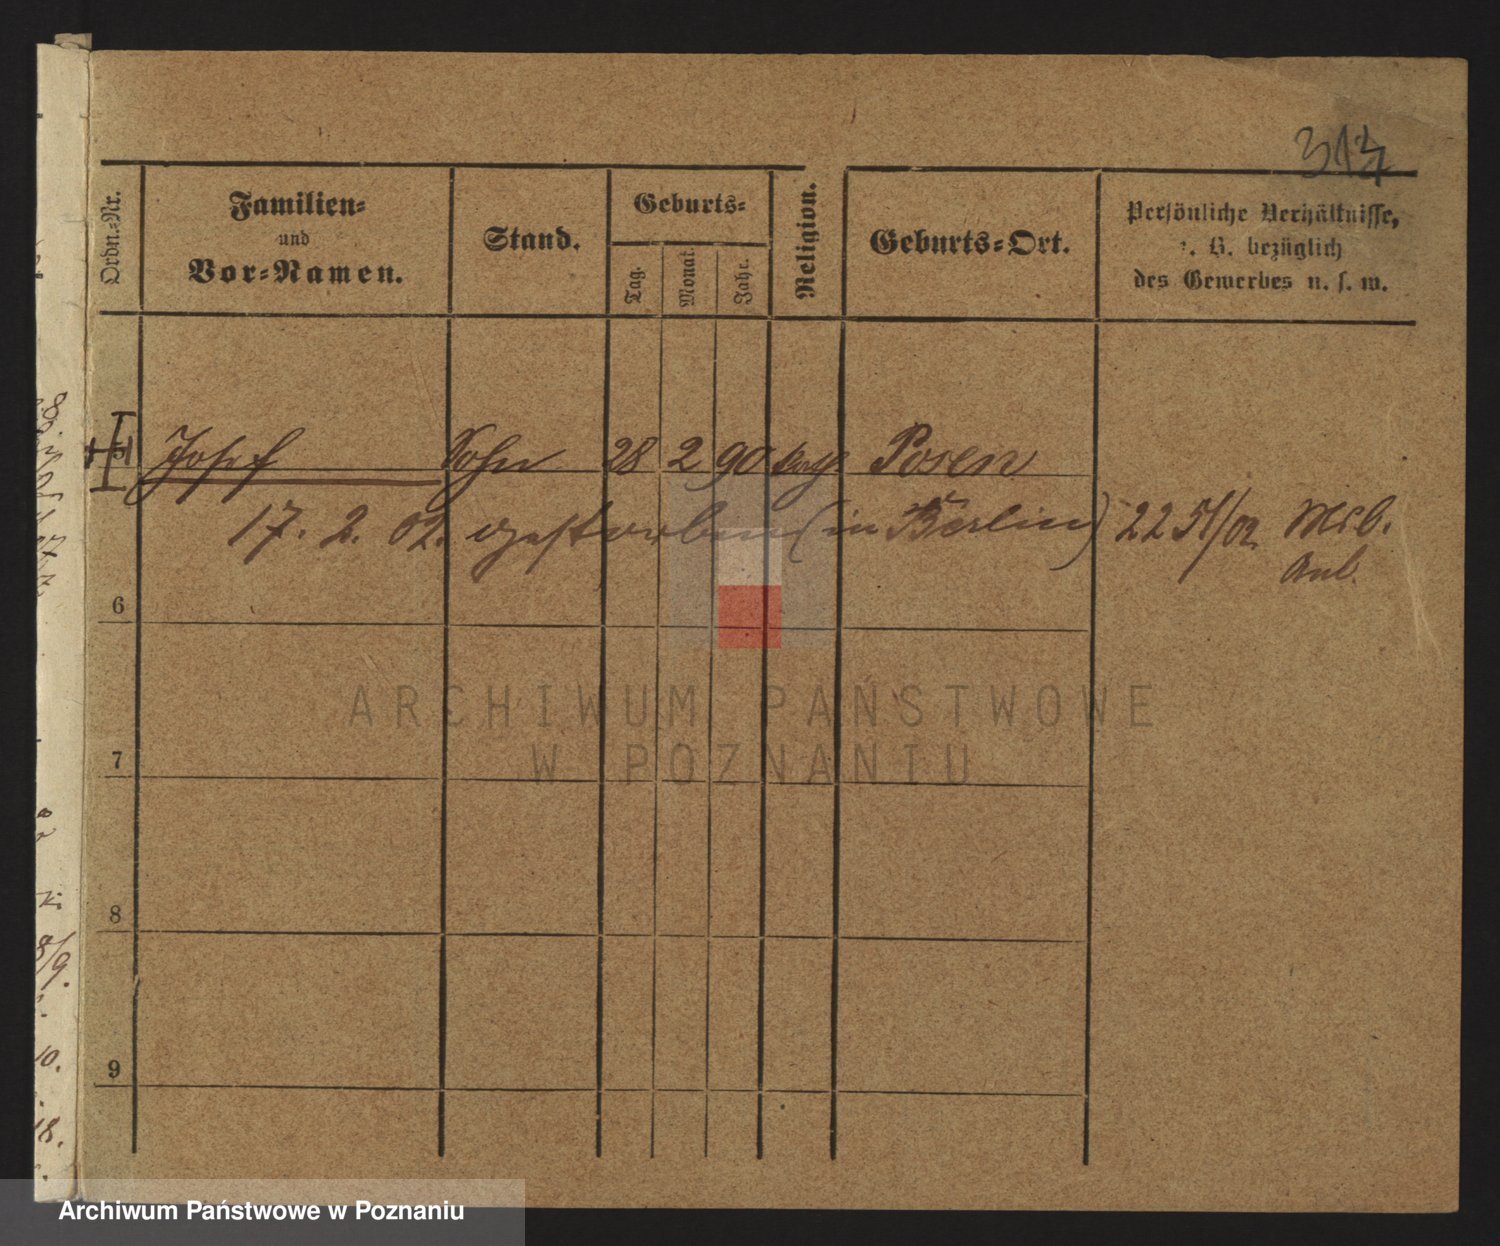 313
Ordn.-Nr.
Familien-
und
Vor-Namen.
Stand.
Geburts-
Tag.
Monat.
Jahr.
Religion.
Geburts-Ort.
Persönliche Verhältnisse,
z. B. bezüglich
des Gewerbes u. s. w.
5 Josef Sohn 28 2 90 kath Posen
17. 2. 02. gestorben (in Berlin) 22 51/02
6
7
8
9
8/9.
10.
18.
ARCHIWUM PAŃSTWOWE
W POZNANIU
Archiwum Państwowe w Poznaniu